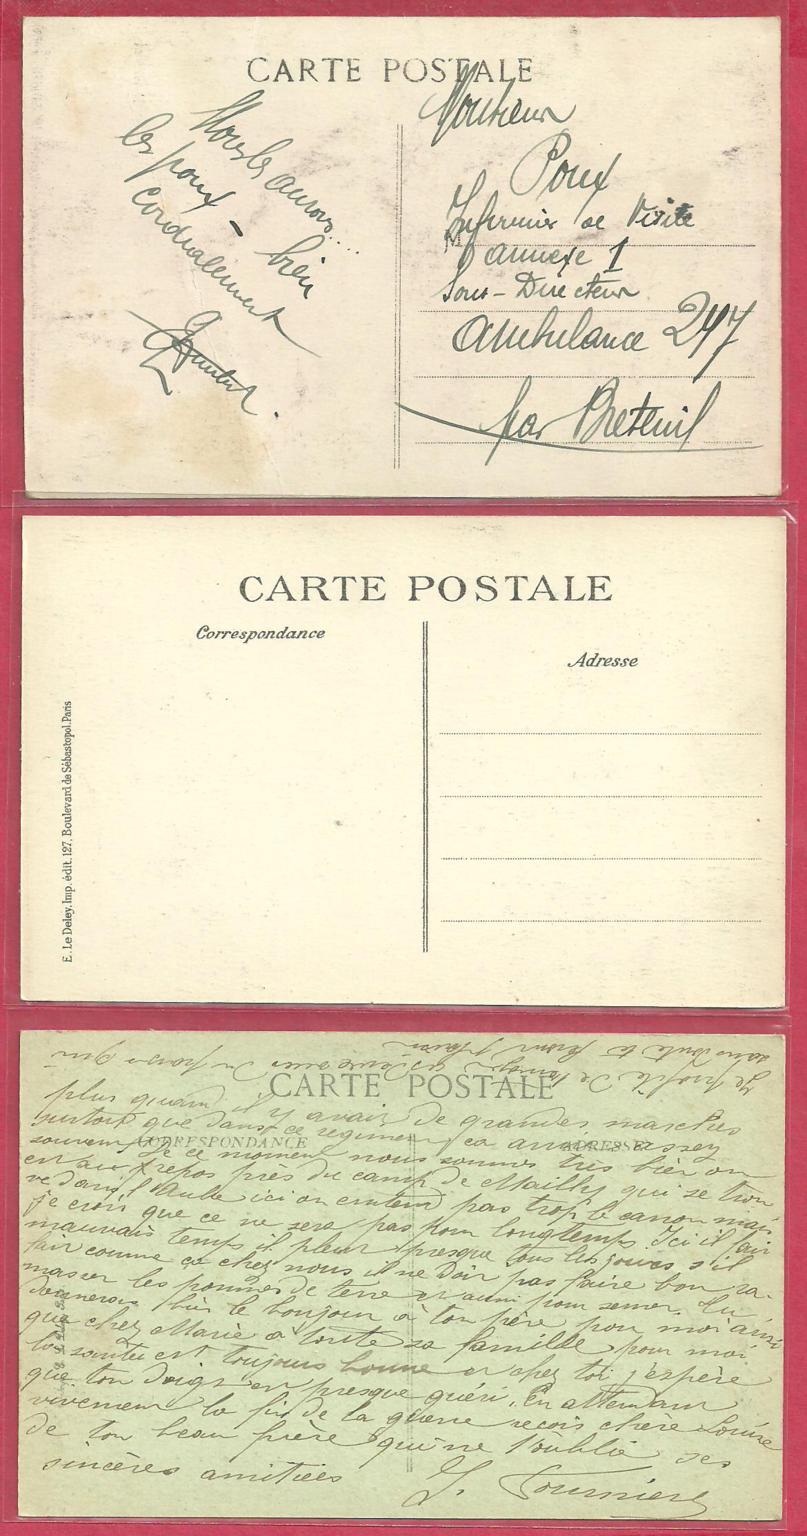 CARTE POSTALE
Nous les aurons....
les poux - bien
cordialement
Monsieur
Poux
Infirmier de Visite
annexe 1
Sous-Directeur
Ambulance 247
par Breteuil
CARTE POSTALE
Correspondance
Adresse
E. Le Deley, Imp. édit. 127, Boulevard de Sébastopol, Paris
CARTE POSTALE
CORRESPONDANCE
ADRESSE
plus quand il y avait de grandes marches
surtout que dans ce régiment ça arrive assez
souvent. De ce moment nous sommes très bien on
est au repos près du camp de Mailly qui se trou
ve dans l'Aube ici on entend pas trop le canon mais
je crois que ce ne sera pas pour longtemps. Ici il fait
mauvais temps il pleut presque tous les jours s'il
fait comme ça chez nous il ne doit pas faire bon ra-
masser les pommes de terre et aussi pour semer. Tu
donneras bien le bonjour à ton père pour moi ainsi
que chez Marie à toute sa famille pour moi
la santé est toujours bonne et chez toi j'espère
que ton doigt est presque guéri. En attendant
vivement la fin de la guerre reçois chère Louise
de ton beau frère qui ne t'oublie ses
sincères amitiées
J. Fournier